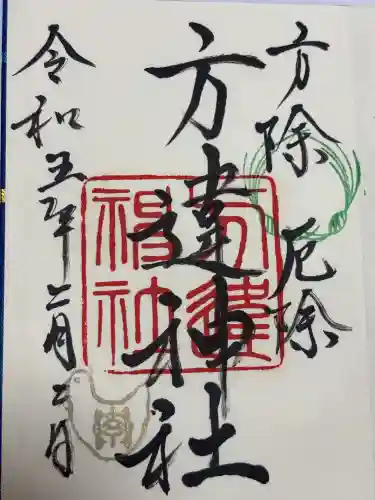 方除 厄除
方違神社
令和五年二月二日
方違神社